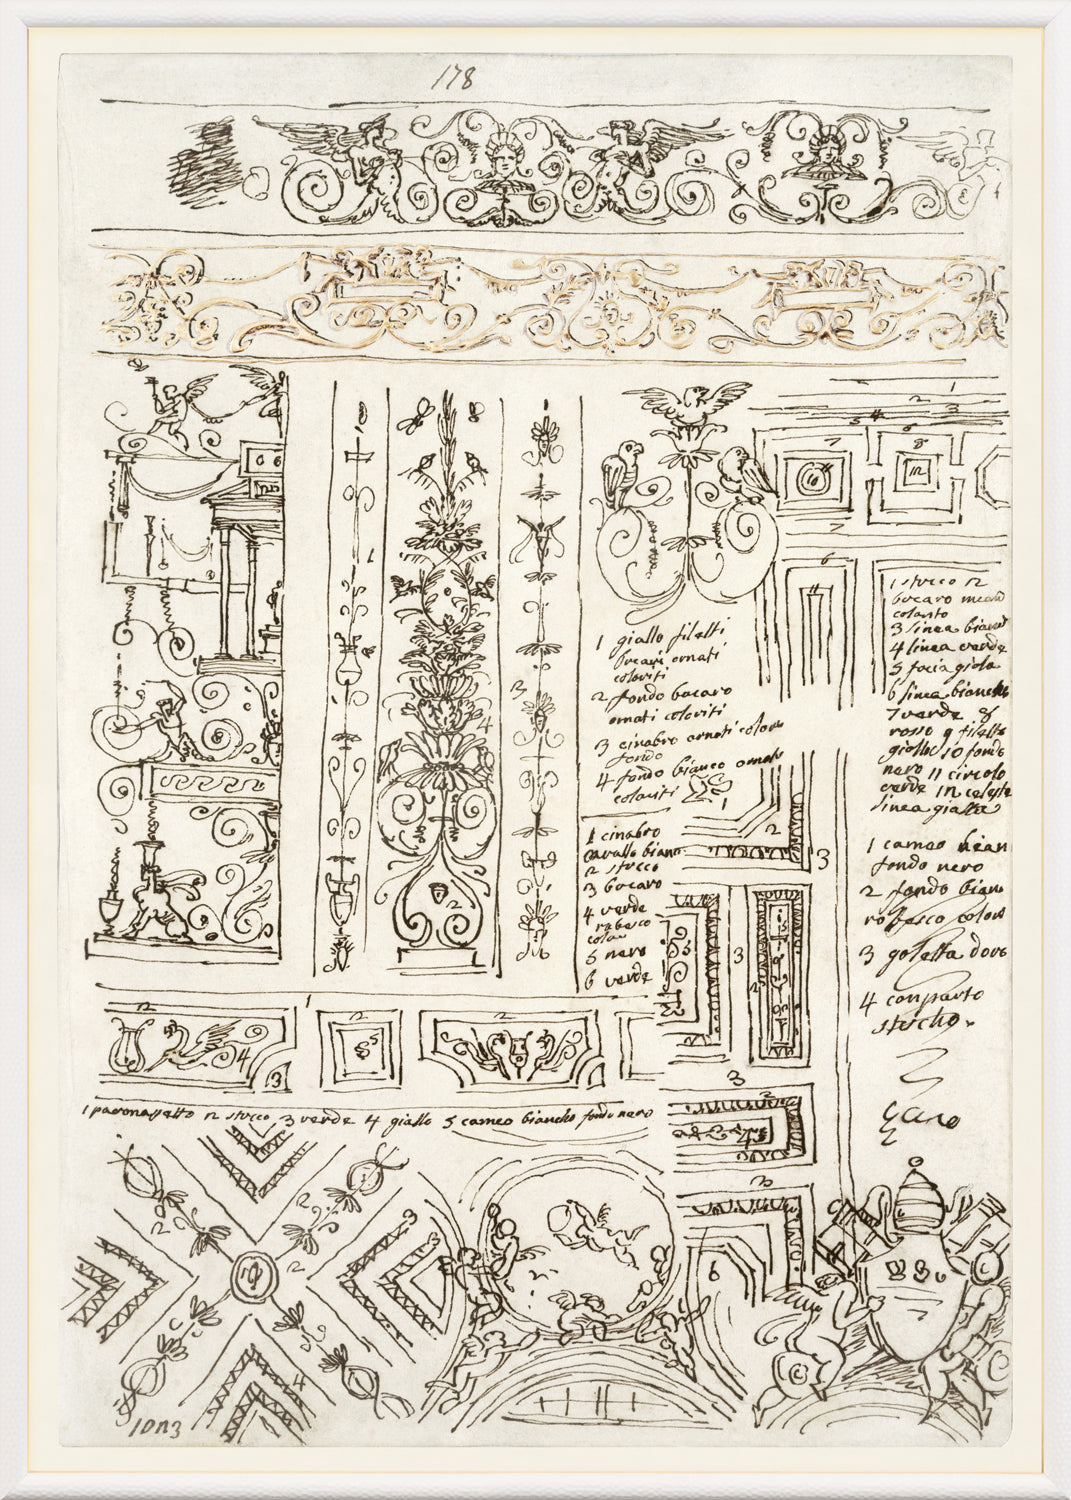 178
1 giallo filetti
bocari ornati
coloriti
2 fondo bocaro
ornati coloriti
3 cinabro ornati coloro
fondo
4 fondo bianco ornati
coloriti
1 cinabro
cavallo bian
2 stucco
3 bocaro
4 verde
rabesco
colo
5 nero
6 verde
1 stucco 2
bocaro
colorito
3 linea bianca
4 linea verde
5 facia giala
6 linea biancha
7 verde 8
rosso 9 filetto
giallo 10 fondo
nero 11 circolo
verde 12 celeste
linea gialla
1 cameo bian
fondo nero
2 fondo bian
rabesco colori
3 goletta doro
4 conparto
stucho.
1 paonazzetto 2 stucco 3 verde 4 giallo 5 cameo biancho fondo nero